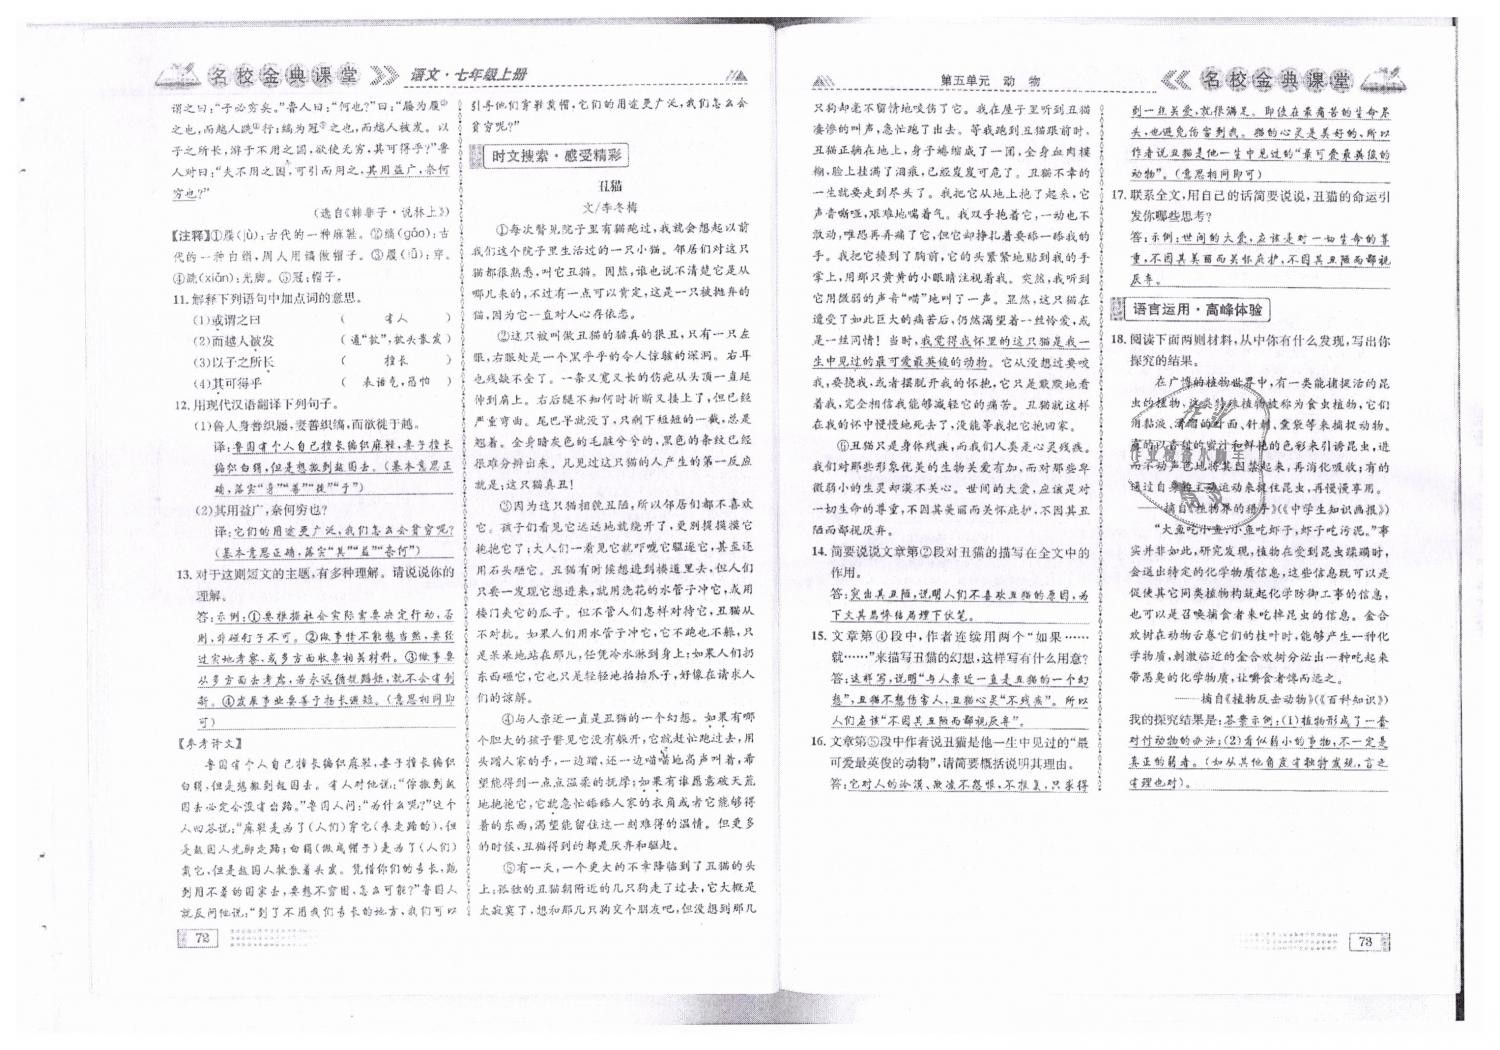 名校金典课堂 语文·七年级上册
谓之曰:“子必穷矣。”鲁人曰:“何也?”曰:“屦为履③
之也,而越人跣④行;缟为冠⑤之也,而越人被发。以
子之所长,游于不用之国,欲使无穷,其可得乎?”鲁
人对曰:“夫不用之国,可引而用之,其用益广,奈何
穷也?”
(选自《韩非子·说林上》)
【注释】①屦(jù):古代的一种麻鞋。②缟(gǎo):古
代的一种白绢,周人用缟做帽子。③履(lǚ):穿。
④跣(xiǎn):光脚。⑤冠:帽子。
11. 解释下列语句中加点词的意思。
(1)或谓之曰 ( 有人 )
(2)而越人被发 ( 通“披”,披头散发 )
(3)以子之所长 ( 擅长 )
(4)其可得乎 ( 表语气,恐怕 )
12. 用现代汉语翻译下列句子。
(1)鲁人身善织屦,妻善织缟,而欲徙于越。
译:鲁国有个人自己擅长编织麻鞋,妻子擅长
编织白绢,但是想搬到越国去。(基本意思正
确,落实“身”“善”“徙”“于”)
(2)其用益广,奈何穷也?
译:它们的用途更广泛,我们怎么会贫穷呢?
(基本意思正确,落实“其”“益”“奈何”)
13. 对于这则短文的主题,有多种理解。请说说你的
理解。
答:示例:①要根据社会实际需要决定行动,否
则,非碰钉子不可。②做事情不能想当然,要经
过实地考察,或多方面收集相关材料。③做事要
从多方面去考虑,若永远循规蹈矩,就不会有创
新。④发展事业要善于扬长避短。(意思相同即
可)
【参考译文】
鲁国有个人自己擅长编织麻鞋,妻子擅长编织
白绢,但是想搬到越国去。有人对他说:“你搬到越
国去必定会没有出路。”鲁国人问:“为什么呢?”这个
人回答说:“麻鞋是为了(人们)穿它(来走路的),但
是越国人光脚走路;白绢(做成帽子)是为了(人们)
戴它,但是越国人披散着头发。凭借你们的专长,跑
到用不着的国家去,要想不穷困,怎么可能?”鲁国人
就反问他说:“到了不用我们专长的地方,我们可以
72
引导他们穿鞋戴帽,它们的用途更广泛,我们怎么会
贫穷呢?”
时文搜索·感受精彩
丑猫
文/李冬梅
①每次瞥见院子里有猫跑过,我就会想起以前
我们这个院子里生活过的一只小猫。邻居们对这只
猫都很熟悉,叫它丑猫。固然,谁也说不清楚它是从
哪儿来的,不过有一点可以肯定,这是一只被抛弃的
猫,因为它一直对人心存依恋。
②这只被叫做丑猫的猫真的很丑,只有一只左
眼,右眼处是一个黑乎乎的令人惊骇的深洞。右耳
也残缺不全了。一条又宽又长的伤疤从头顶一直延
伸到肩上。右后腿不知何时折断又接上了,但已经
严重弯曲。尾巴半就没了,只剩下短短的一截,总是
翘着。全身暗灰色的毛脏兮兮的,黑色的条纹已经
很难分辨出来。凡见过这只猫的人产生的第一反应
就是:这只猫真丑!
③因为这只猫相貌丑陋,所以邻居们都不喜欢
它。孩子们看见它远远地就绕开了,更别提摸摸它
抱抱它了;大人们一看见它就吓唬它驱逐它,甚至还
用石头砸它。丑猫有时候想进到楼道里去,但人们
只要一发现它想进来,就用浇花的水管子冲它,或用
楼门夹它的瓜子。但不管人们怎样对待它,丑猫从
不对抗。如果人们用水管子冲它,它不跑也不躲,只
是呆呆地站在那儿,任凭冷水淋到身上;如果人们扔
东西砸它,它也只是轻轻地抬抬爪子,好像在请求人
们的谅解。
④与人亲近一直是丑猫的一个幻想。如果有哪
个胆大的孩子瞥见它没有躲开,它就赶忙跑过去,用
头蹭人家的手,一边蹭,还一边喵喵地高声叫着,希
望能得到一点点温柔的抚摩;如果有谁愿意破天荒
地抱抱它,它就急忙舔舔人家的衣角或者它能够得
着的东西,渴望能留住这一刻难得的温情。但更多
的时候,丑猫得到的都是厌弃和驱赶。
⑤有一天,一个更大的不幸降临到了丑猫的头
上;孤独的丑猫朝附近的几只狗走了过去,它大概是
太寂寞了,想和那几只狗交个朋友吧,但没想到那几
第五单元 动 物 名校金典课堂
只狗却毫不留情地咬伤了它。我在屋子里听到丑猫
凄惨的叫声,急忙跑了出去。等我跑到丑猫跟前时,
丑猫正躺在地上,身子蜷缩成了一团,全身血肉模
糊,脸上挂满了泪痕,已经岌岌可危了。丑猫不幸的
一生就要走到尽头了。我把它从地上抱了起来,它
声音嘶哑,艰难地喘着气。我双手抱着它,一动也不
敢动,唯恐再弄痛了它,但它却挣扎着要舔一舔我的
手。我把它搂到了胸前,它的头紧紧地贴到我的手
掌上,用那只黄黄的小眼睛注视着我。突然,我听到
它用微弱的声音“喵”地叫了一声。显然,这只猫在
遭受了如此巨大的痛苦后,仍然渴望着一丝怜爱,或
是一丝同情!当时,我觉得我怀里的这只猫是我一
生中见过的最可爱最英俊的动物。它从没想过要咬
我,要挠我,或者摆脱开我的怀抱,它只是默默地看
着我,完全相信我能够减轻它的痛苦。丑猫就这样
在我的怀中慢慢地死去了,没能等我把它抱回家。
⑥丑猫只是身体残疾,而我们人类是心灵残疾。
我们对那些形象优美的生物关爱有加,而对那些卑
微弱小的生灵却漠不关心。世间的大爱,应该是对
一切生命的尊重,不因其美丽而关怀庇护,不因其丑
陋而鄙视厌弃。
14. 简要说说文章第②段对丑猫的描写在全文中的
作用。
答:突出其丑陋,说明人们不喜欢丑猫的原因,为
下文其悲惨结局埋下伏笔。
15. 文章第④段中,作者连续用两个“如果……
就……”来描写丑猫的幻想,这样写有什么用意?
答:这样写,说明“与人亲近一直是丑猫的一个幻
想”,丑猫不想伤害人,丑猫心灵“不残疾”。所以
人们应该“不因其丑陋而鄙视厌弃”。
16. 文章第⑤段中作者说丑猫是他一生中见过的“最
可爱最英俊的动物”,请简要概括说明其理由。
答:它对人的冷漠、欺凌不怨恨,不报复,只求得
到一点关爱,就很满足。即使在最痛苦的生命尽
头,也避免伤害到我。猫的心灵是美好的,所以
作者说丑猫是他一生中见过的“最可爱最英俊的
动物”。(意思相同即可)
17. 联系全文,用自己的话简要说说,丑猫的命运引
发你哪些思考?
答:示例:世间的大爱,应该是对一切生命的尊
重,不因其美丽而关怀庇护,不因其丑陋而鄙视
厌弃。
语言运用·高峰体验
18. 阅读下面两则材料,从中你有什么发现,写出你
探究的结果。
在广博的植物世界中,有一类能捕捉活的昆
虫的植物,这类特殊植物被称为食虫植物,它们
用黏液、滑溜的叶面、针刺、囊袋等来捕捉动物。
有的以香甜的蜜汁和鲜艳的色彩来引诱昆虫,进
而不动声色地将其囚禁起来,再消化吸收;有的
通过自身的主动运动来捉住昆虫,再慢慢享用。
——摘自《植物界的猎手》(《中学生知识画报》)
“大鱼吃小鱼,小鱼吃虾子,虾子吃污泥。”事
实并非如此,研究发现,植物在受到昆虫蹂躏时,
会送出特定的化学物质信息,这些信息既可以是
促使其它同类植物构筑起化学防御工事的信息,
也可以是召唤捕食者来吃掉昆虫的信息。金合
欢树在动物舌卷它们的枝叶时,能够产生一种化
学物质,刺激临近的金合欢树分泌出一种吃起来
带恶臭的化学物质,让嚼食者馋而远之。
——摘自《植物反击动物》(《百科知识》)
我的探究结果是:答案示例:(1)植物形成了一套
对付动物的办法;(2)看似弱小的事物,不一定是
真正的弱者。(如从其他角度有独特发现,言之
有理也对)。
73